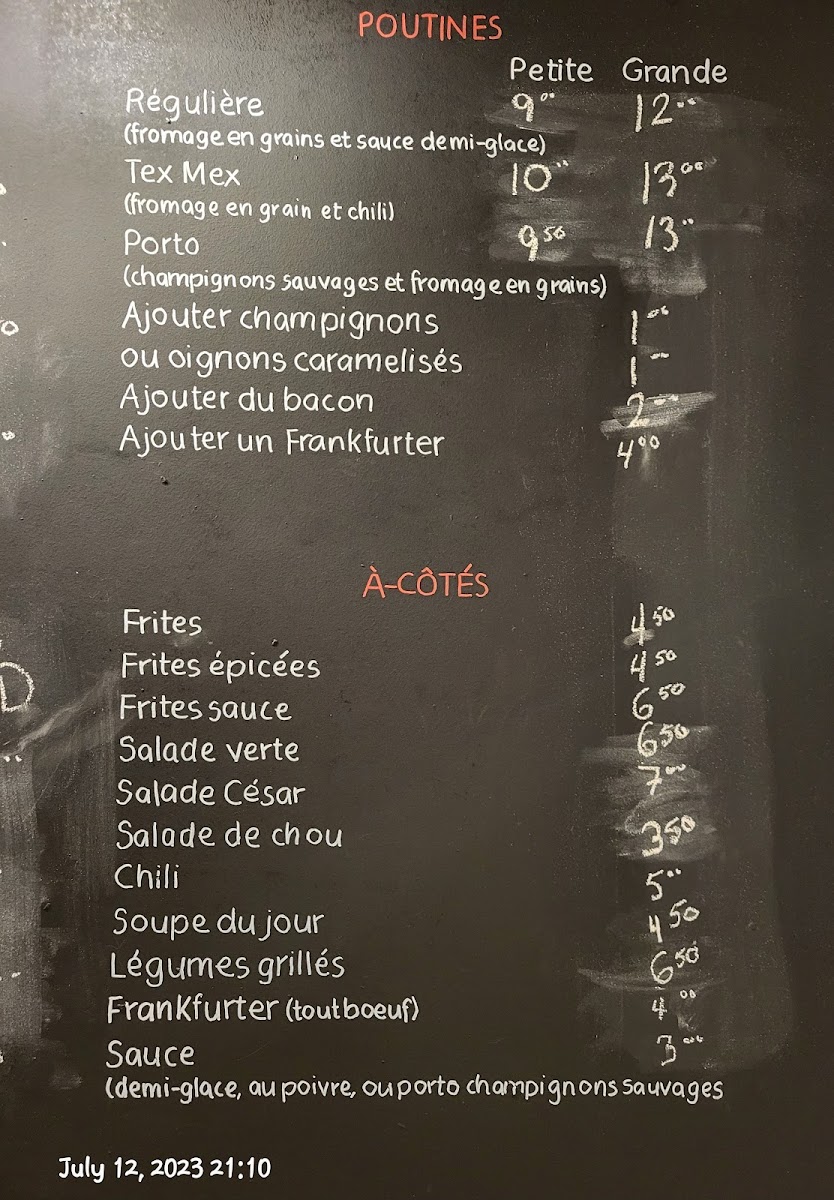 POUTINES
Petite Grande
Régulière 9⁰⁰ 12⁰⁰
(fromage en grains et sauce demi-glace)
Tex Mex 10⁰⁰ 13⁰⁰
(fromage en grain et chili)
Porto 9⁵⁰ 13⁰⁰
(champignons sauvages et fromage en grains)
Ajouter champignons 1⁰⁰
ou oignons caramelisés 1⁰⁰
Ajouter du bacon 2⁰⁰
Ajouter un Frankfurter 4⁰⁰
À-CÔTÉS
Frites 4⁵⁰
Frites épicées 4⁵⁰
Frites sauce 6⁵⁰
Salade verte 6⁵⁰
Salade César 7⁰⁰
Salade de chou 3⁵⁰
Chili 5⁰⁰
Soupe du jour 4⁵⁰
Légumes grillés 6⁵⁰
Frankfurter (tout boeuf) 4⁰⁰
Sauce 3⁰⁰
(demi-glace, au poivre, ou porto champignons sauvages
July 12, 2023 21:10